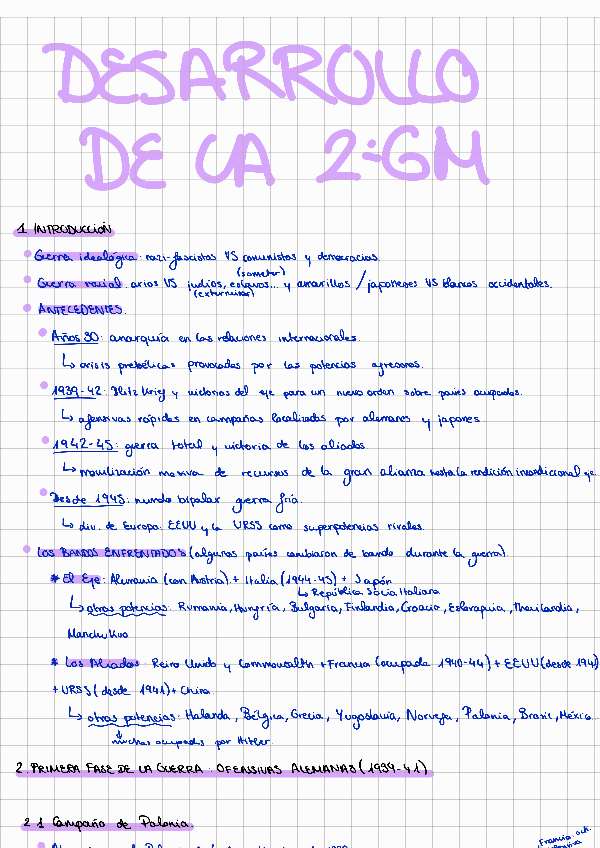 DESARROLLO
DE LA 2ªGM
1. INTRODUCCIÓN
Guerra ideológica: nazi-fascistas VS comunistas y democracias.
(someter)
Guerra racial: arios VS judíos, eslavos... y amarillos / japoneses VS blancos occidentales.
(exterminar)
ANTECEDENTES.
Años 30: anarquía en las relaciones internacionales.
↳ crisis prebélicas provocadas por las potencias agresoras.
1939-42: Blitz Krieg y victorias del eje para un nuevo orden sobre países ocupados.
↳ ofensivas rápidas en campañas localizadas por alemanes y japones.
1942-45: guerra total y victoria de los aliados
↳ movilización masiva de recursos de la gran alianza hasta la rendición incondicional eje.
Desde 1945: mundo bipolar guerra fría.
↳ div. de Europa: EEUU y la URSS como superpotencias rivales.
LOS BANDOS ENFRENTADOS (algunos países cambiaron de bando durante la guerra).
* El Eje: Alemania (con Austria) + Italia (1944-45) + Japón
↳ República Socia Italiana
↳ otras potencias: Rumania, Hungría, Bulgaria, Finlandia, Croacia, Eslovaquia, Thailandia,
Manchu Kuo
* Los Aliados: Reino Unido y Commonwealth + Francia (ocupada 1940-44) + EEUU (desde 1941)
+ URSS (desde 1941) + China.
↳ otras potencias: Holanda, Bélgica, Grecia, Yugoslavia, Noruega, Polonia, Brasil, México.
↓
muchas ocupadas por Hitler.
2. PRIMERA FASE DE LA GUERRA: OFENSIVAS ALEMANAS (1939-41)
2.1 Campaña de Polonia.
Francia act.